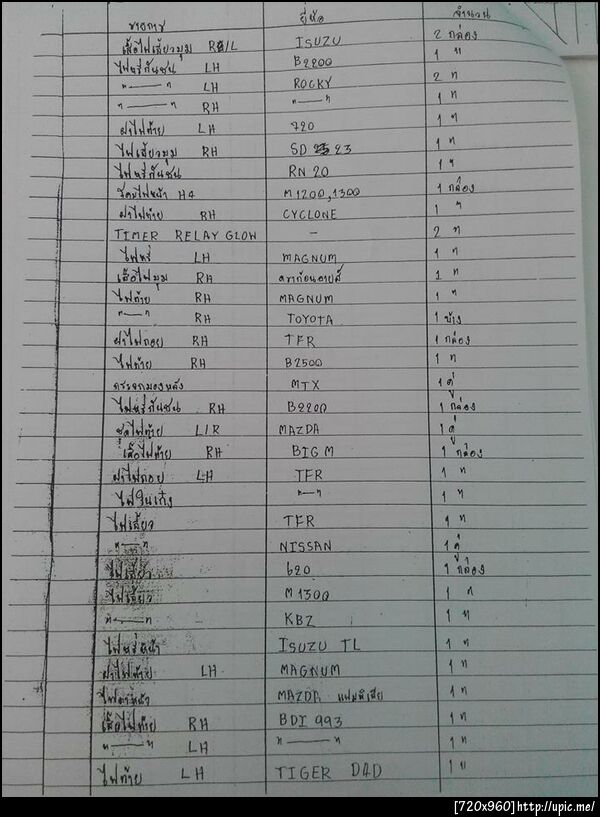 รายการ ยี่ห้อ จำนวน
เสื้อไฟเลี้ยวมุม R/L ISUZU 2 กล่อง
ไฟหรี่กันชน LH B2200 1 "
" — " LH ROCKY 2 "
" — " RH " — " 1 "
ฝาไฟท้าย LH 720 1 "
ไฟเลี้ยวมุม RH SD 23 1 "
ไฟหรี่กันชน RN 20 1 "
ไฟหน้า H4 M1200,1300 1 กล่อง
ฝาไฟท้าย RH CYCLONE 1 "
TIMER RELAY GLOW - 2 "
ไฟหรี่ LH MAGNUM 1 "
เสื้อไฟมุม RH 1 "
ไฟท้าย RH MAGNUM 1 "
" — " RH TOYOTA 1 ข้าง
ฝาไฟถอย RH TFR 1 กล่อง
ไฟท้าย RH B2500 1 "
กระจกมองหลัง MTX 1 คู่
ไฟหรี่กันชน RH B2200 1 กล่อง
ชุดไฟท้าย L/R MAZDA 1 คู่
เสื้อไฟท้าย RH BIG M 1 กล่อง
ฝาไฟถอย LH TFR 1 "
ไฟในเก๋ง " — " 1 "
ไฟเลี้ยว TFR 1 "
" — " NISSAN 1 คู่
ไฟเลี้ยว 620 1 กล่อง
ไฟเลี้ยว M1300 1 "
" — " KBZ 1 "
ไฟหรี่หน้า ISUZU TL 1 "
ฝาไฟท้าย LH MAGNUM 1 "
MAZDA แฟมิเลีย 1 "
เสื้อไฟท้าย RH BDI 993 1 "
" — " LH " — " 1 "
ไฟท้าย LH TIGER D4D 1 "
[720x960]http://upic.me/